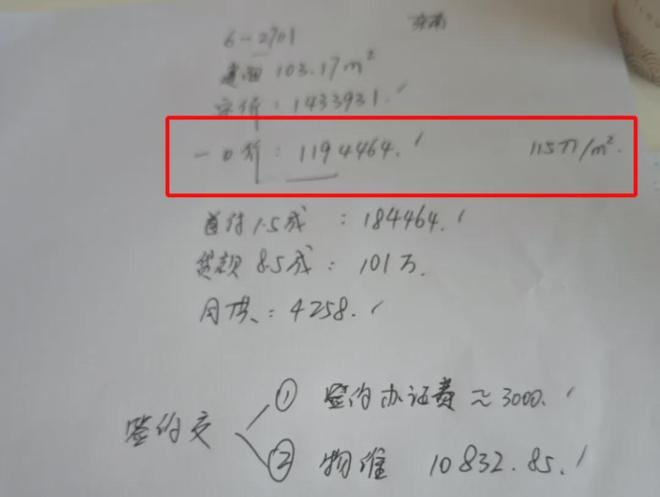 6-2701 东南
建面 103.17m²
定价：1433931.
一口价：1194464. 11577/m²
首付1.5成：184464.
贷款8.5成：101万.
月供：4258.
签约交
① 签约办证费≈3000.
② 物维 10832.85.